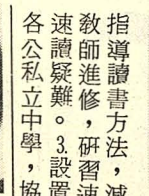 指導讀書方法，減
教師進修，研習速
速讀疑難。3.設置
各公私立中學，協